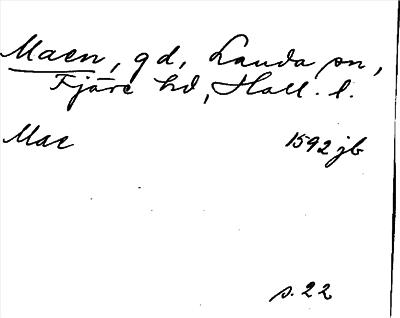 Maen, gd, Landa sn,
Fjäre hd, Hall. l.
Mae 1592 jb
s. 22